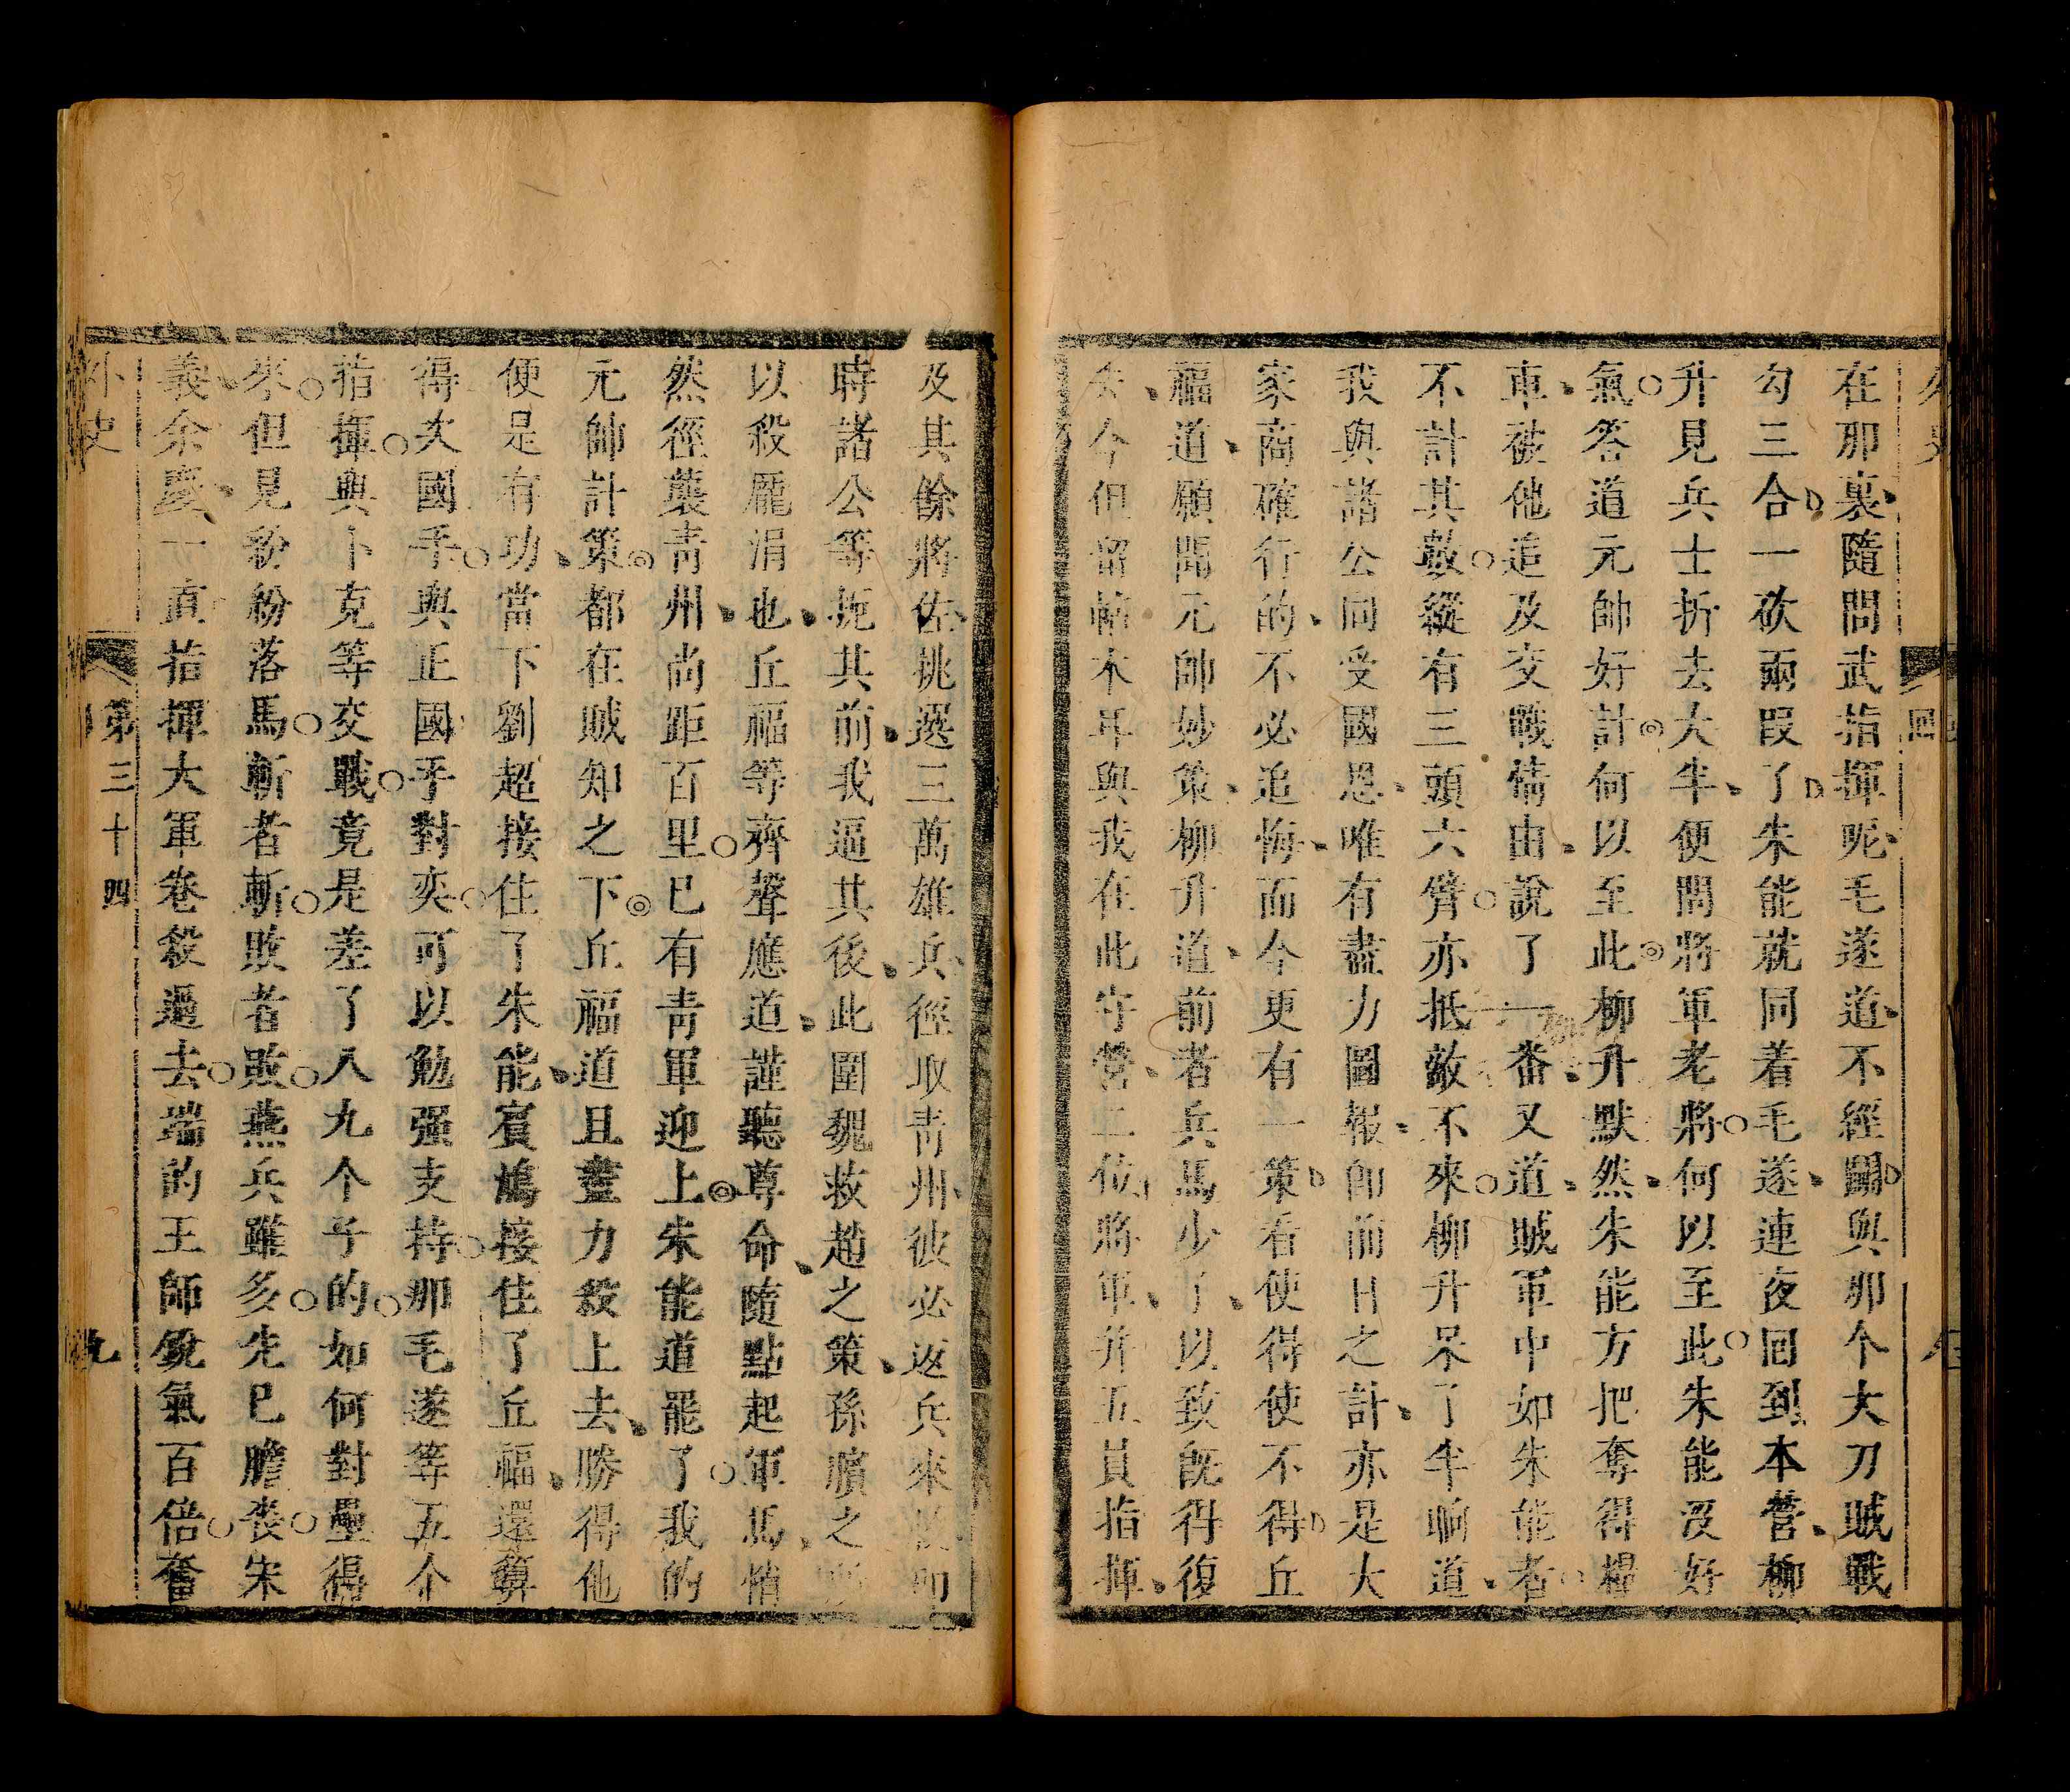 在那裏隨問武指揮呢毛遂道不經鬭與那个大刀賊戰
勾三合一砍兩段了朱能就同着毛遂連夜回到本營柳
升見兵士折去大半便問將軍老將何以至此朱能沒好
氣答道元帥好計何以至此柳升默然朱能方把奪得糧
車被他追及交戰情由說了一番又道賊軍中如朱能者
不計其數縱有三頭六臂亦抵敵不來柳升呆了半晌道
我與諸公同受國恩唯有盡力圖報即前日之計亦是大
家商確行的不必追悔而今更有一策看使得使不得丘
福道願聞元帥妙策柳升道前者兵馬少了以致旣得復
去今但留帖木耳與我在此守營二位將軍并五員指揮
及其餘將佐挑選三萬雄兵徑取青州彼必返兵來即
時諸公等扼其前我逼其後此圍魏救趙之策孫臏之
以殺龐涓也丘福等齊聲應道謹聽尊命隨點起軍馬悄
然徑襲青州尚距百里已有青軍迎上朱能道罷了我的
元帥計策都在賊知之下丘福道且盡力殺上去勝得他
便是有功當下劉超接住了朱能賓鴻接住了丘福還算
得大國手與正國手對奕可以勉强支持那毛遂等五个
指揮與卜克等交戰竟是差了八九个子的如何對壘得
來但見紛紛落馬斬者斬敗者敗燕兵雖多先已膽喪宋
義余慶一直指揮大軍卷殺過去端的王師銳氣百倍奮
外史
第三十四
九